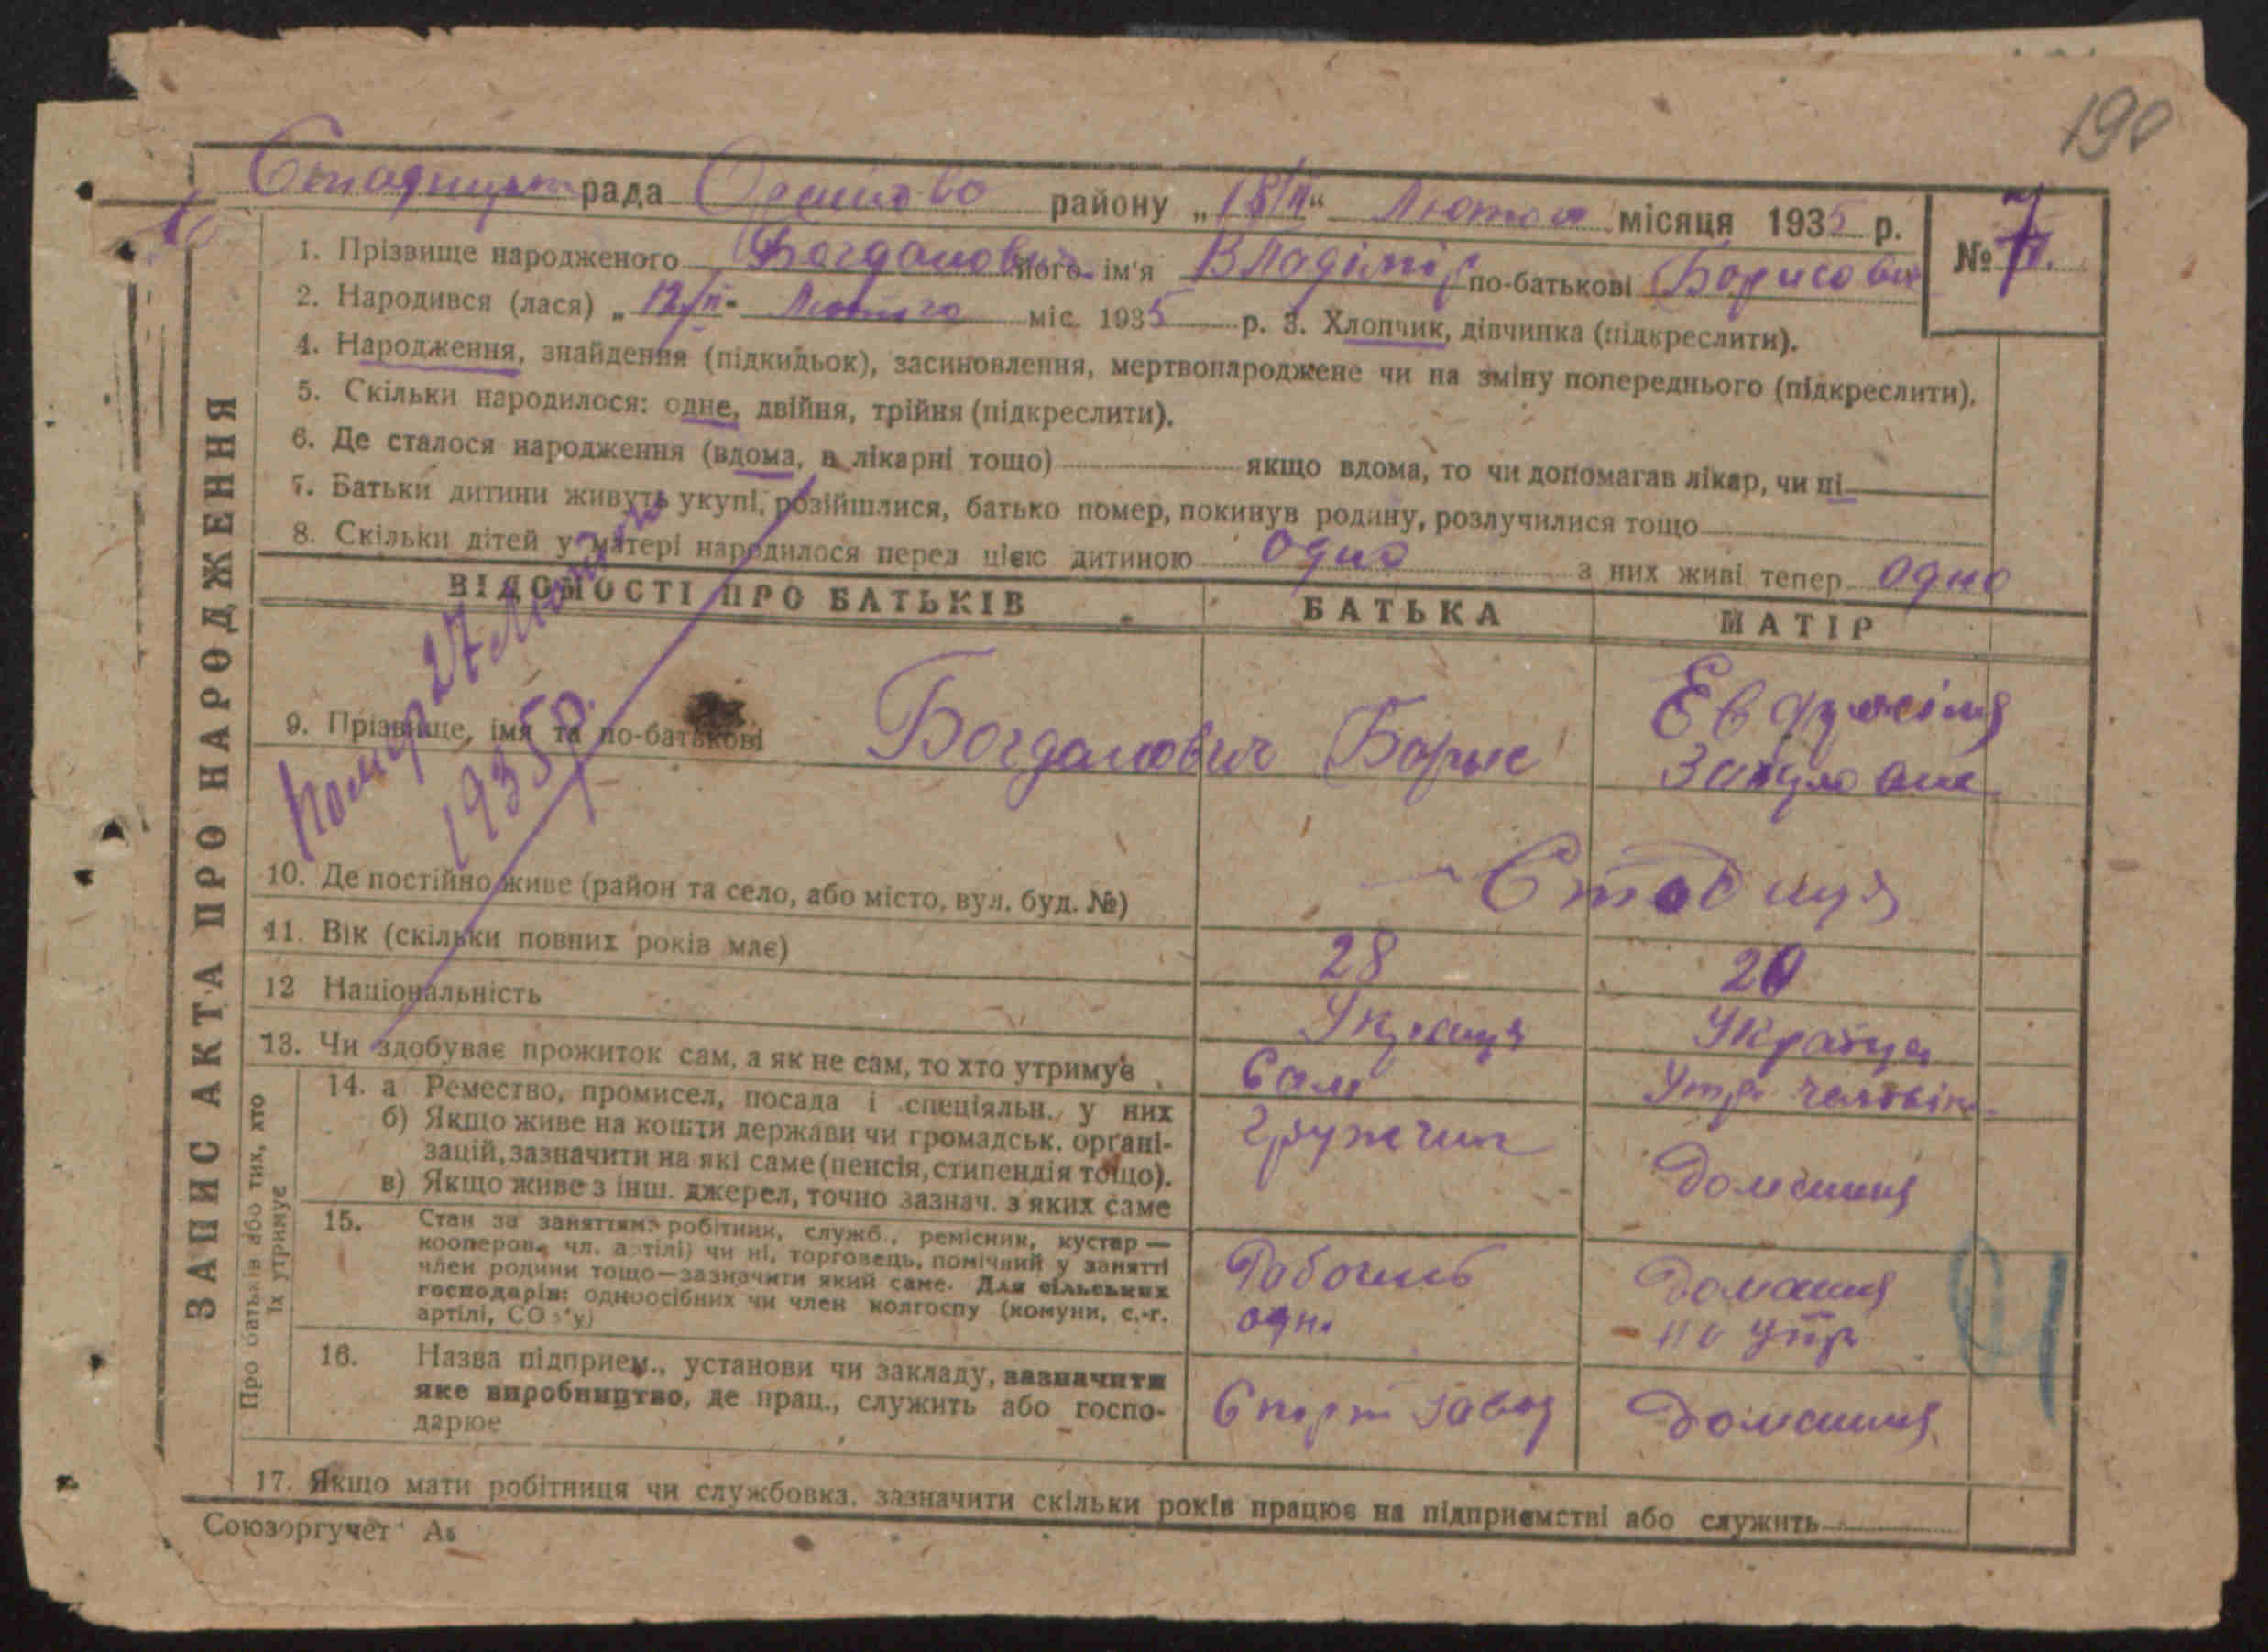 190
рада району „18/II“ Лютого місяця 1935 р.
№ 7
1. Прізвище народженого Богданович його ім'я Владімір по-батькові Борисович
2. Народився (лася) „12/II“ Лютого міс. 1935 р. 3. Хлопчик, дівчинка (підкреслити).
4. Народження, знайдення (підкидьок), засиновлення, мертвонароджене чи на зміну попереднього (підкреслити).
5. Скільки народилося: одне, двійня, трійня (підкреслити).
6. Де сталося народження (вдома, в лікарні тощо) якщо вдома, то чи допомагав лікар, чи ні
7. Батьки дитини живуть укупі, розійшлися, батько помер, покинув родину, розлучилися тощо
8. Скільки дітей у матері народилося перед цією дитиною одно з них живі тепер одно
ЗАПИС АКТА ПРО НАРОДЖЕННЯ
ВІДОМОСТІ ПРО БАТЬКІВ БАТЬКА МАТІР
Помер 27
1935 р.
9. Прізвище, імя та по-батькові Богданович Борис
10. Де постійно живе (район та село, або місто, вул. буд. №) Стадниця
11. Вік (скільки повних років має) 28 20
12 Національність Україця Україця
13. Чи здобуває прожиток сам, а як не сам, то хто утримує Сам Утр. чоловік
Про батьків або тих, хто їх утримує
14. а Ремество, промисел, посада і спеціяльн. у них грузчик Домашня
б) Якщо живе на кошти держави чи громадськ. органі-
зацій, зазначити на які саме (пенсія, стипендія тощо).
в) Якщо живе з інш. джерел, точно зазнач. з яких саме
15. Стан за заняттям: робітник, служб., ремісник, кустар — Рабочий Домашня
кооперов. чл. артілі) чи ні, торговець, помічний у занятті
член родини тощо—зазначити який саме. Для сільських
господарів: одноосібних чи член колгоспу (комуни, с.-г. одн.
артілі, СОЗ'у)
16. Назва підприєм., установи чи закладу, зазначити Спирт завод Домашня
яке виробництво, де прац., служить або госпо-
дарює
17. Якщо мати робітниця чи службовка, зазначити скільки років працює на підприємстві або служить
Союзоргучет